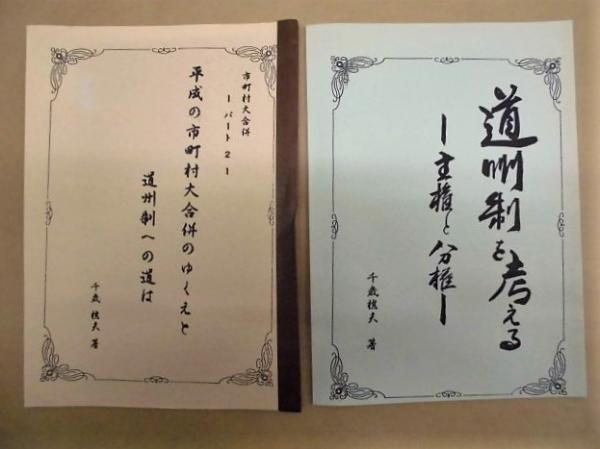 市町村大合併
ーパート2ー
平成の市町村大合併のゆくえと
道州制への道は
千歳 著
道州制を考える
ー主権と分権ー
千歳 著